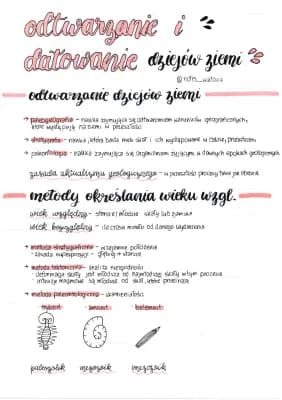 odtwarzanie i
datowanie dziejów ziemi
odtwarzanie dziejów ziemi
→ paleogeografia - nauka zajmująca się odtwarzaniem warunków geograficznych,
które występują na ziemi w przeszłości
→ stratygrafia - nauka, która bada wiek skał i ich występowanie w czasie, przestrzeni
→ paleontologia - nauka zajmująca się organizmami żyjącymi w dawnych epokach geologicznych
zasada aktualizmu geologicznego - w przeszłości procesy takie jak obecnie
metody określania wieku wzgl.
wiek względny - starsze/młodsze skały lub zjawiska
wiek bezwzględny - ile czasu minęło od danego wydarzenia
→ metoda stratygraficzna - wzajemne położenie
• zasada superpozycji - głębiej = starsze
→ metoda tektoniczna - analiza niezgodności
• deformacja skały jest młodsza od najmłodszej skały w tym procesie
• intruzje magmowe są młodsze od skał, które przecinają
→ metoda paleontologiczna - skamieniałości
trylobit amonit belemnit
paleozoik mezozoik mezozoik